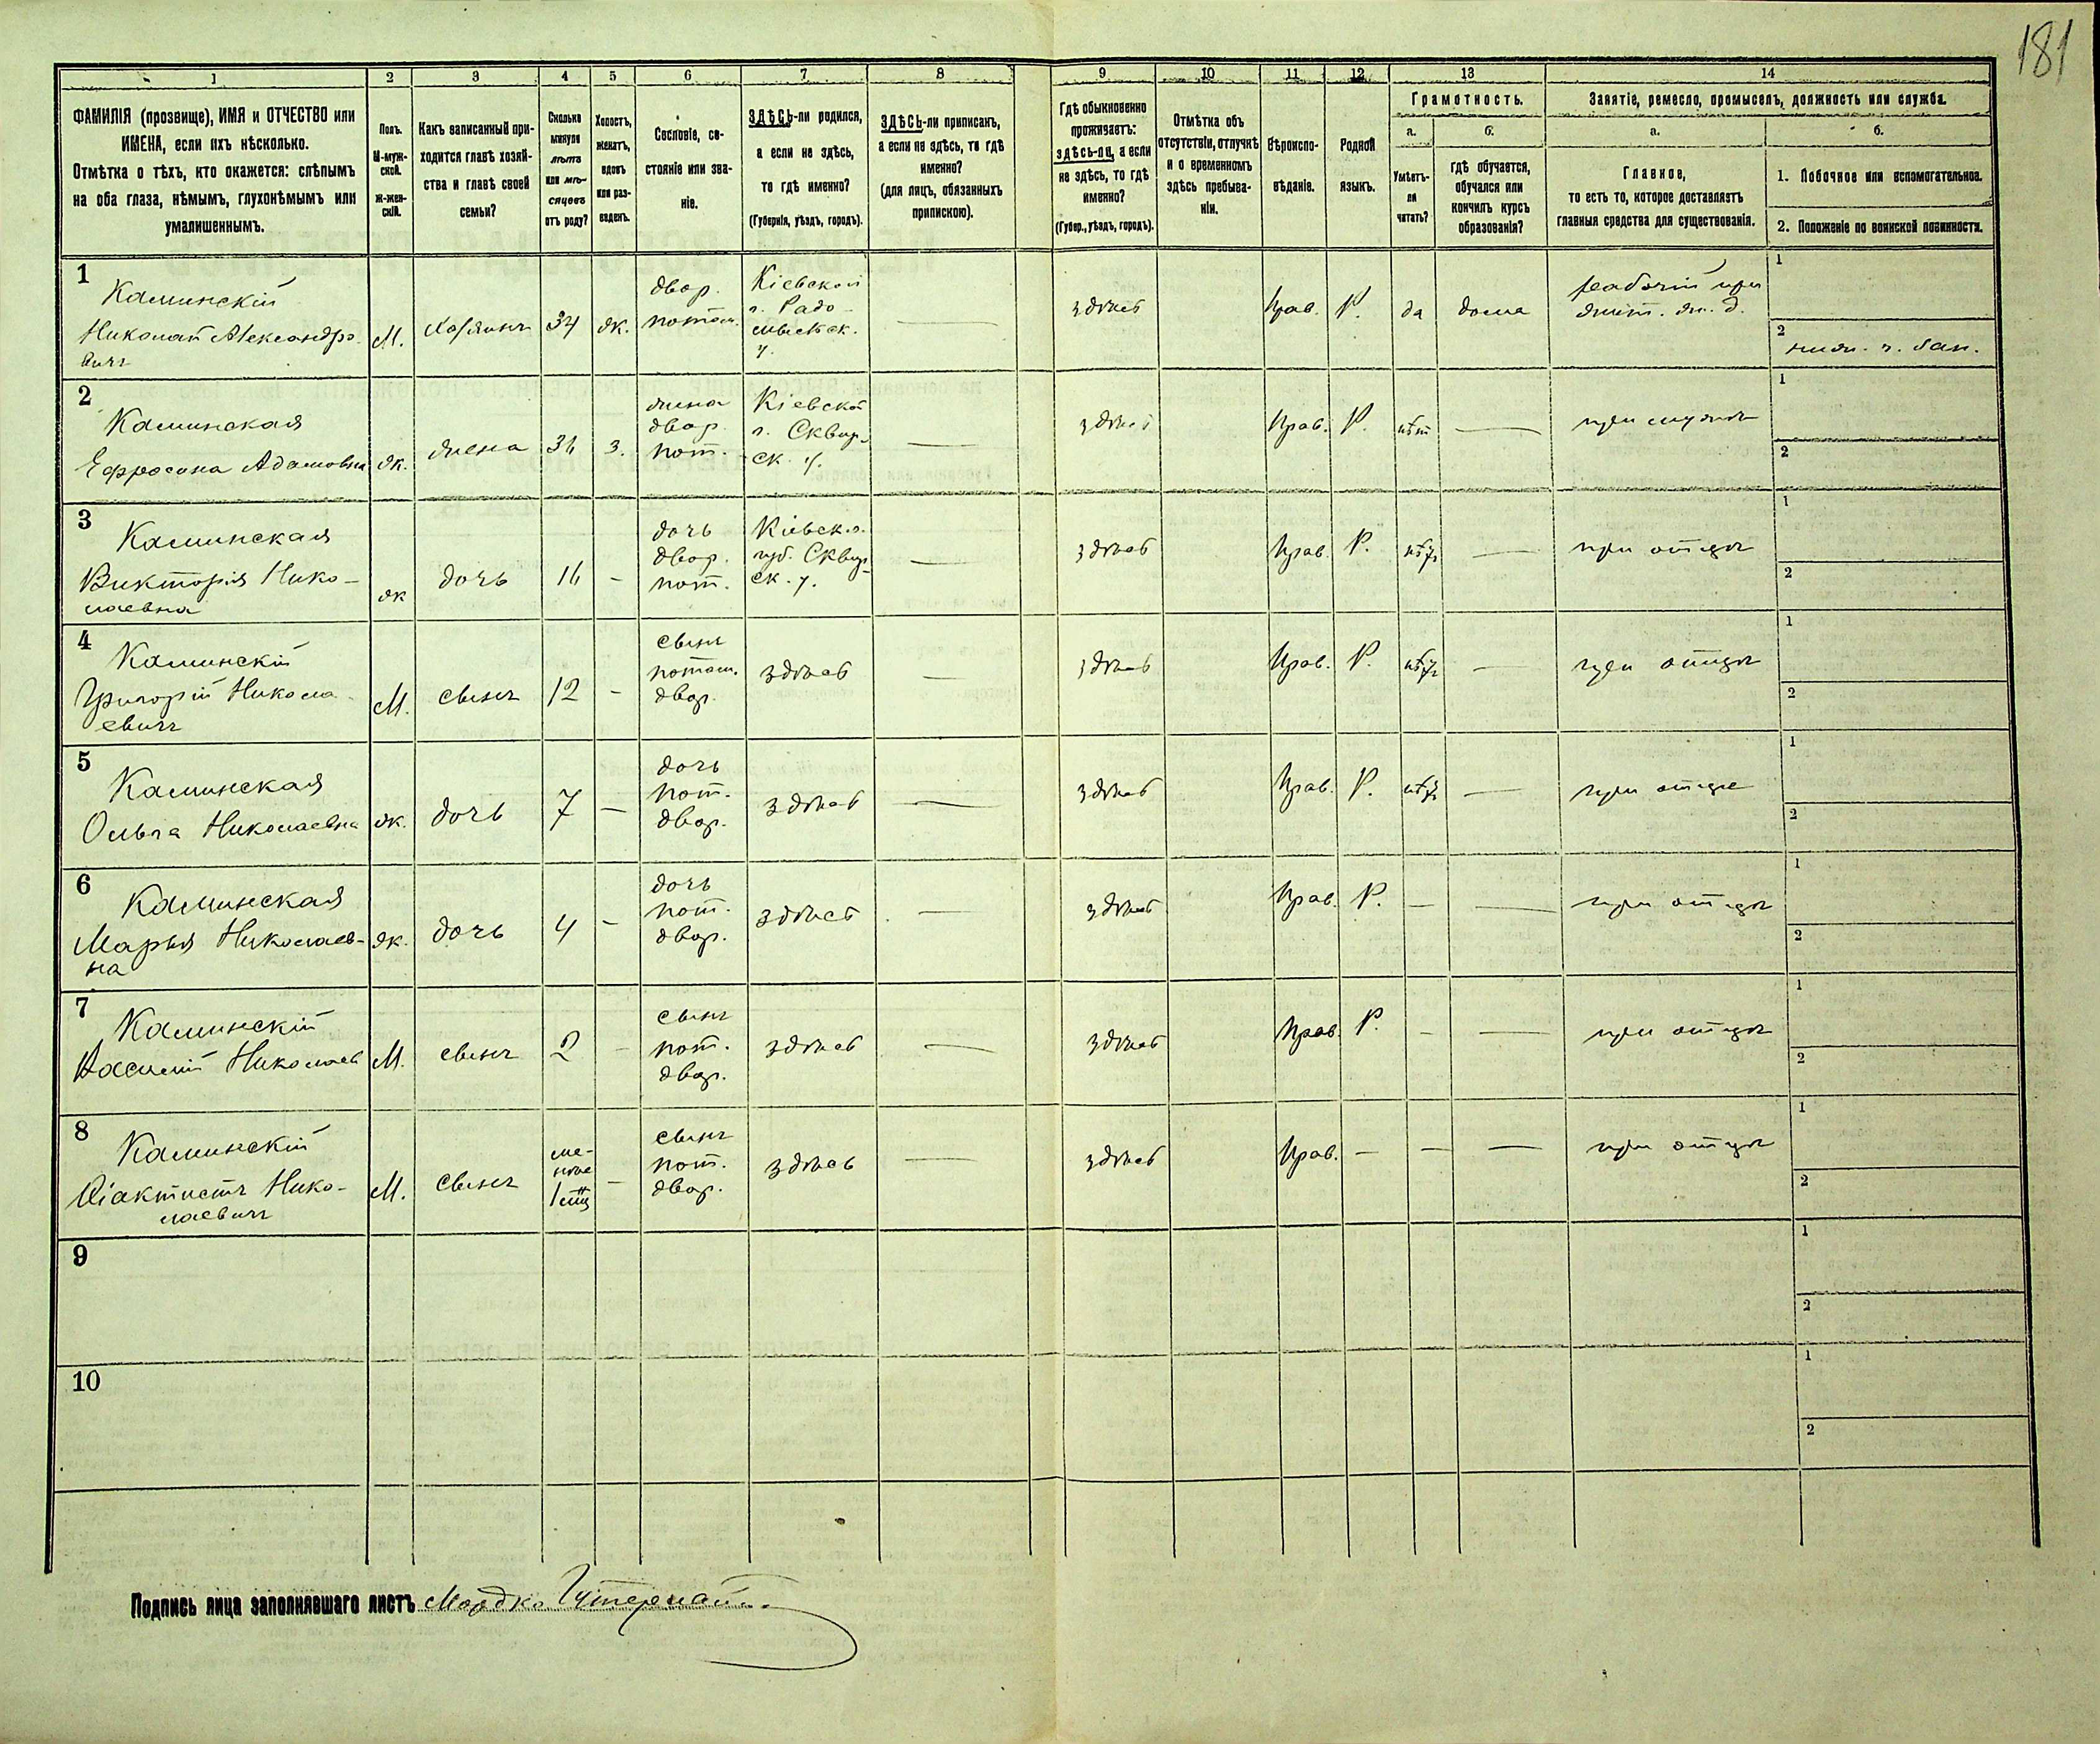 181
1 2 3 4 5 6 7 8 9 10 11 12 13 14
ФАМИЛІЯ (прозвище), ИМЯ и ОТЧЕСТВО или
ИМЕНА, если ихъ нѣсколько.
Отмѣтка о тѣхъ, кто окажется: слѣпымъ
на оба глаза, нѣмымъ, глухонѣмымъ или
умалишеннымъ.
Полъ.
М-муж-
ской.
Ж-жен-
скій.
Какъ записанный при-
ходится главѣ хозяй-
ства и главѣ своей
семьи?
Сколько
минуло
лѣтъ
или мѣ-
сяцевъ
отъ роду?
Холостъ,
женатъ,
вдовъ
или раз-
веденъ.
Сословіе, со-
стояніе или зва-
ніе.
ЗДѢСЬ-ли родился,
а если не здѣсь,
то гдѣ именно?
(Губернія, уѣздъ, городъ).
ЗДѢСЬ-ли приписанъ,
а если не здѣсь, то гдѣ
именно?
(для лицъ, обязанныхъ
припискою).
Гдѣ обыкновенно
проживаетъ:
здѣсь-ли, а если
не здѣсь, то гдѣ
именно?
(Губер., уѣздъ, городъ).
Отмѣтка объ
отсутствіи, отлучкѣ
и о временномъ
здѣсь пребыва-
ніи.
Вѣроиспо-
вѣданіе.
Родной
языкъ.
Грамотность.
а.
Умѣетъ-
ли
читать?
б.
гдѣ обучается,
обучался или
кончилъ курсъ
образованія?
Занятіе, ремесло, промыселъ, должность или служба.
а.
Главное,
то есть то, которое доставляетъ
главныя средства для существованія.
б.
1. Побочное или вспомогательное.
2. Положеніе по воинской повинности.
1
Каминскій
Николай Александро-
вичъ
М.
Хозяинъ
34
ж.
двор.
потом.
Кіевской
г. Радо-
мысльск.
у.
—
здѣсь
Прав.
Р.
да
дома
рабочій при
1
2
2
Каминская
Ефросина Адамовна
ж.
жена
36
з.
жена
двор.
пот.
Кіевской
г. Сквир-
ск. у.
—
здѣсь
Прав.
Р.
нѣт
—
при мужѣ
1
2
3
Каминская
Викторія Нико-
лаевна
ж
дочь
16
-
дочь
двор.
пот.
Кіевск.
губ. Сквир-
ск. у.
—
здѣсь
Прав.
Р.
нѣтъ
—
при отцѣ
1
2
4
Каминскій
Григорій Никола-
евичъ
М.
сынъ
12
-
сынъ
потом.
двор.
здѣсь
—
здѣсь
Прав.
Р.
нѣтъ
—
при отцѣ
1
2
5
Каминская
Ольга Николаевна
ж.
дочь
7
—
дочь
пот.
двор.
здѣсь
—
здѣсь
Прав.
Р.
нѣтъ
—
при отце
1
2
6
Каминская
Марья Николаев-
на
ж.
дочь
4
-
дочь
пот.
двор.
здѣсь
—
здѣсь
Прав.
Р.
—
—
при отцѣ
1
2
7
Каминскій
Василій Николаев
М.
сынъ
2
-
сынъ
пот.
двор.
здѣсь
—
здѣсь
Прав.
Р.
-
—
при отцѣ
1
2
8
Каминскій
Ѳіактистъ Нико-
лаевичъ
М.
сынъ
ме-
нѣе
1
-
сынъ
пот.
двор.
здѣсь
—
здѣсь
Прав.
—
—
—
при отцѣ
1
2
9
1
2
10
1
2
Подпись лица заполнявшаго листъ Мордко